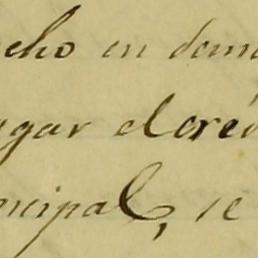 echo en dema
agar el créd
ncipal, se